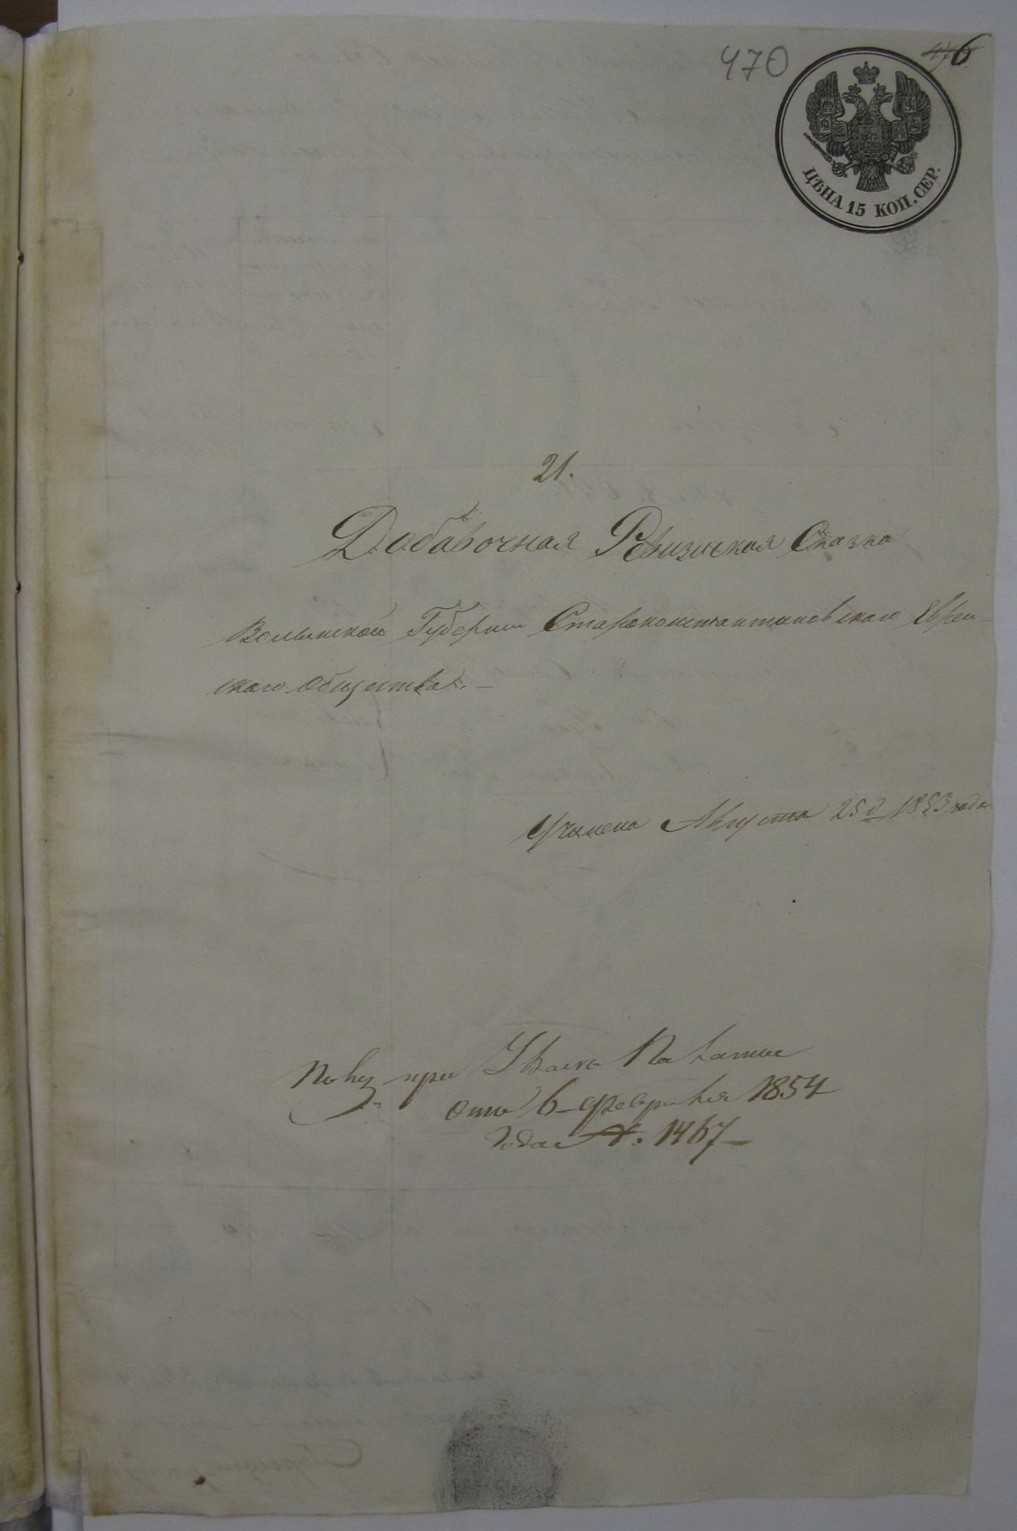 470
6
ЦѢНА 15 КОП. СЕР.
21.
Добавочная Ревизская Сказка
Волынской Губернии Староконстантиновского Еврей-
ского общества. —
Учинена Августа 25 д 1853 года
при Указе Палаты
отъ 6 февраля 1854
года № 1467